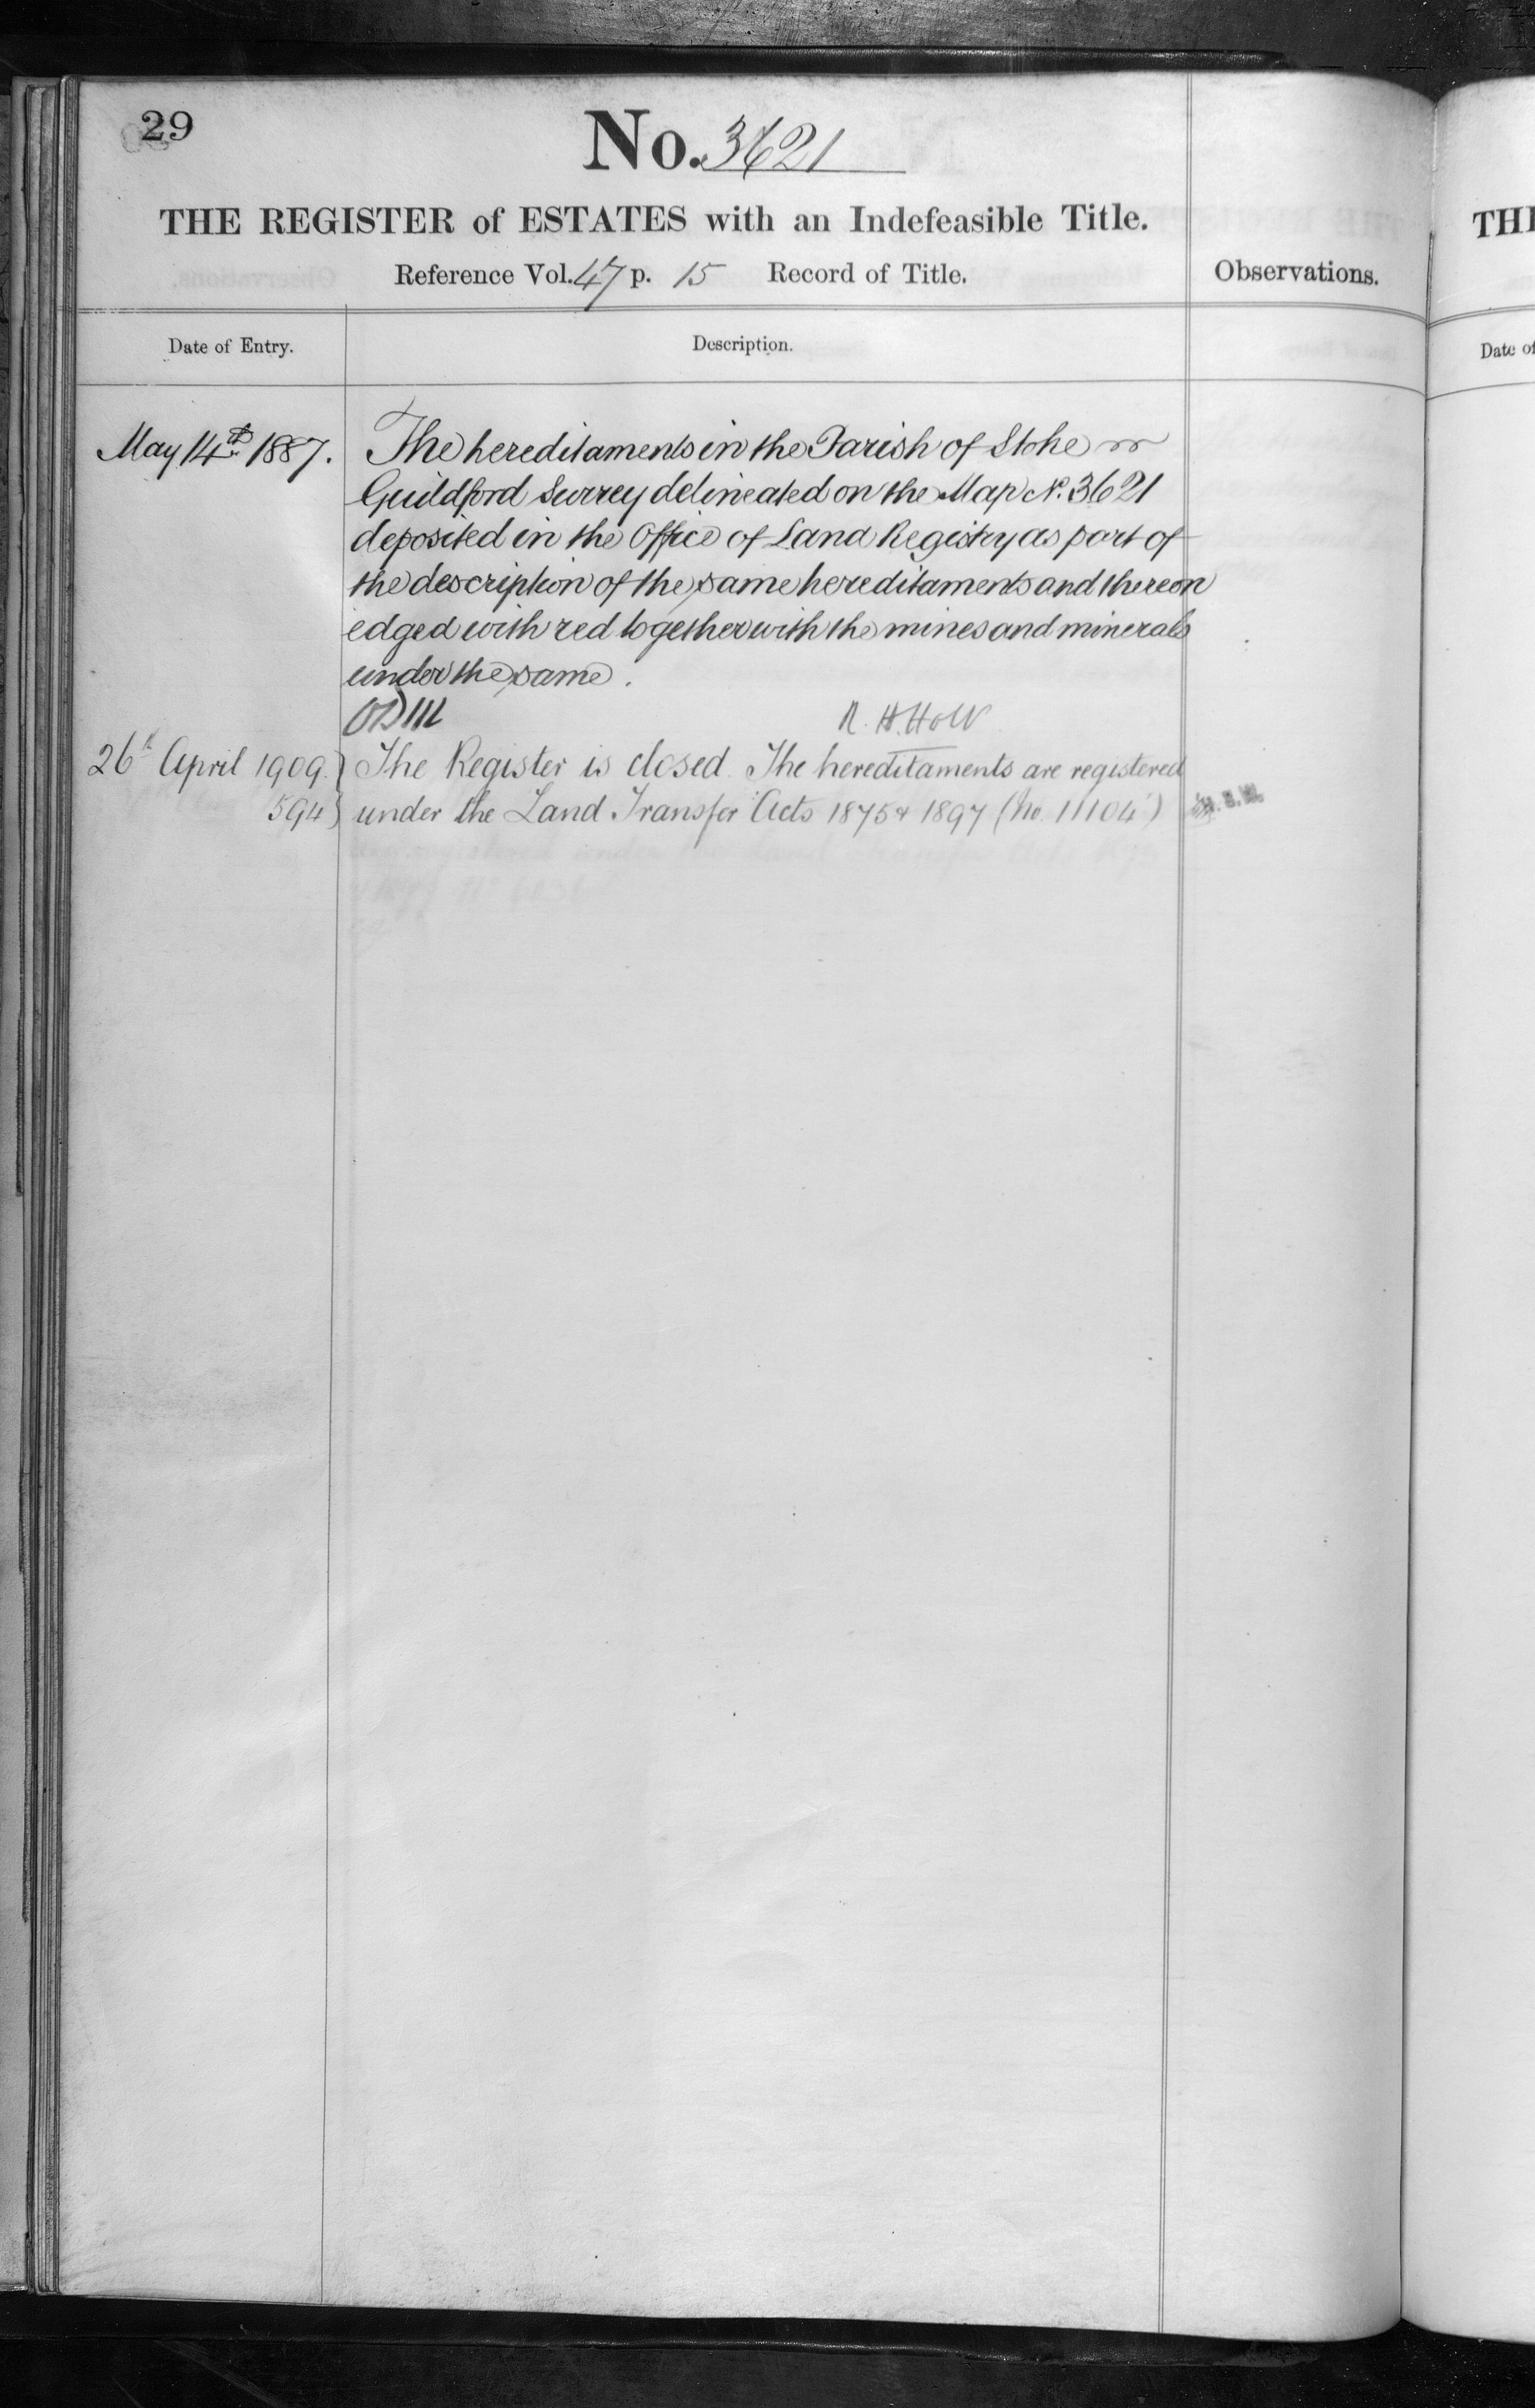 29
No. 3621
THE REGISTER of ESTATES with an Indefeasible Title.
Reference Vol. 47 p. 15 Record of Title.
Observations.
Date of Entry.
Description.
May 14th 1887.
The hereditaments in the Parish of Stoke
Guildford Surrey delineated on the Map No. 3621
deposited in the Office of Land Registry as part of
the description of the same hereditaments and thereon
edged with red together with the mines and minerals
under the same.
R. H. Holt
26th April 1909. } The Register is closed. The hereditaments are registered
594 } under the Land Transfer Acts 1875 & 1897 (No. 11104)
THE
Date of